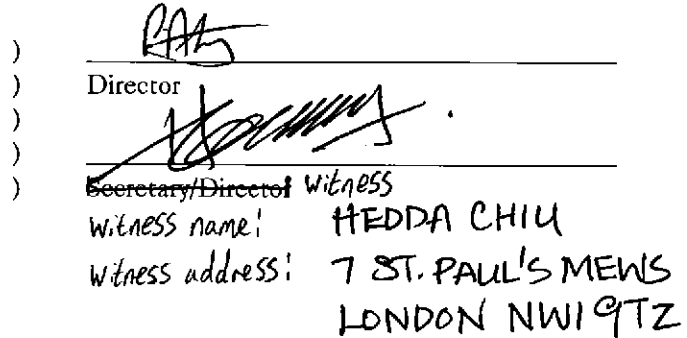 )
) Director
)
)
) Secretary/Director Witness
Witness name: HEDDA CHIU
Witness address: 7 ST. PAUL'S MEWS
LONDON NW1 9TZ